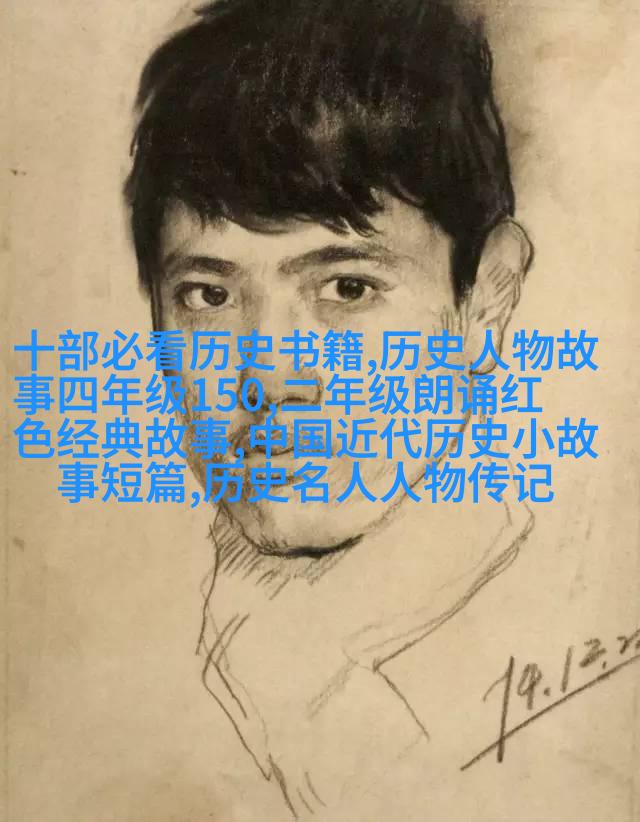 十部必看历史书籍,历史人物故
事四年级150,二年级朗诵红
色经典故事,中国近代历史小故
事短篇,历史名人人物传记